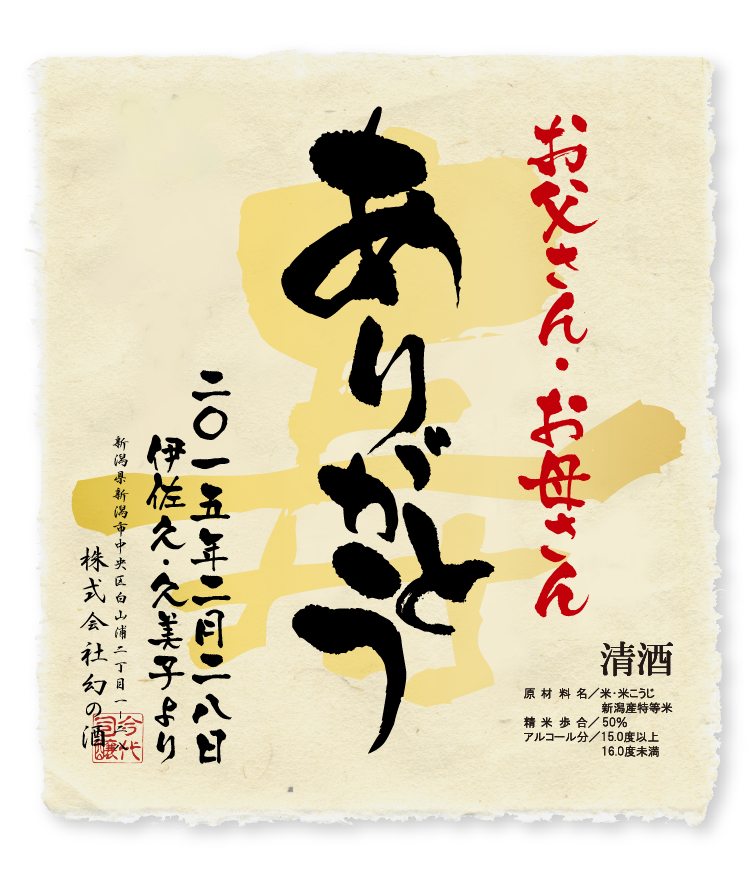 お父さん・お母さん
ありがとう
二〇一五年二月二八日
伊佐久・久美子より
新潟県新潟市中央区白山浦二丁目一
株式会社幻の酒
清酒
原材料名／米・米こうじ
新潟産特等米
精米歩合／50%
アルコール分／15.0度以上
16.0度未満